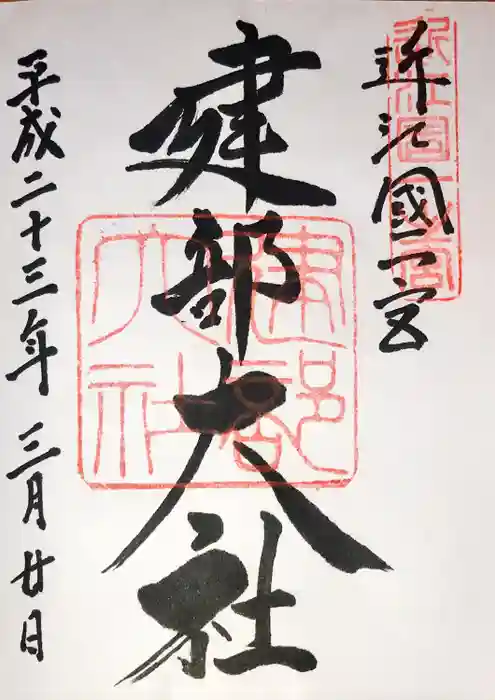 近江國一宮
建部大社
平成二十三年 三月廿日
近江國一宮
建部大社